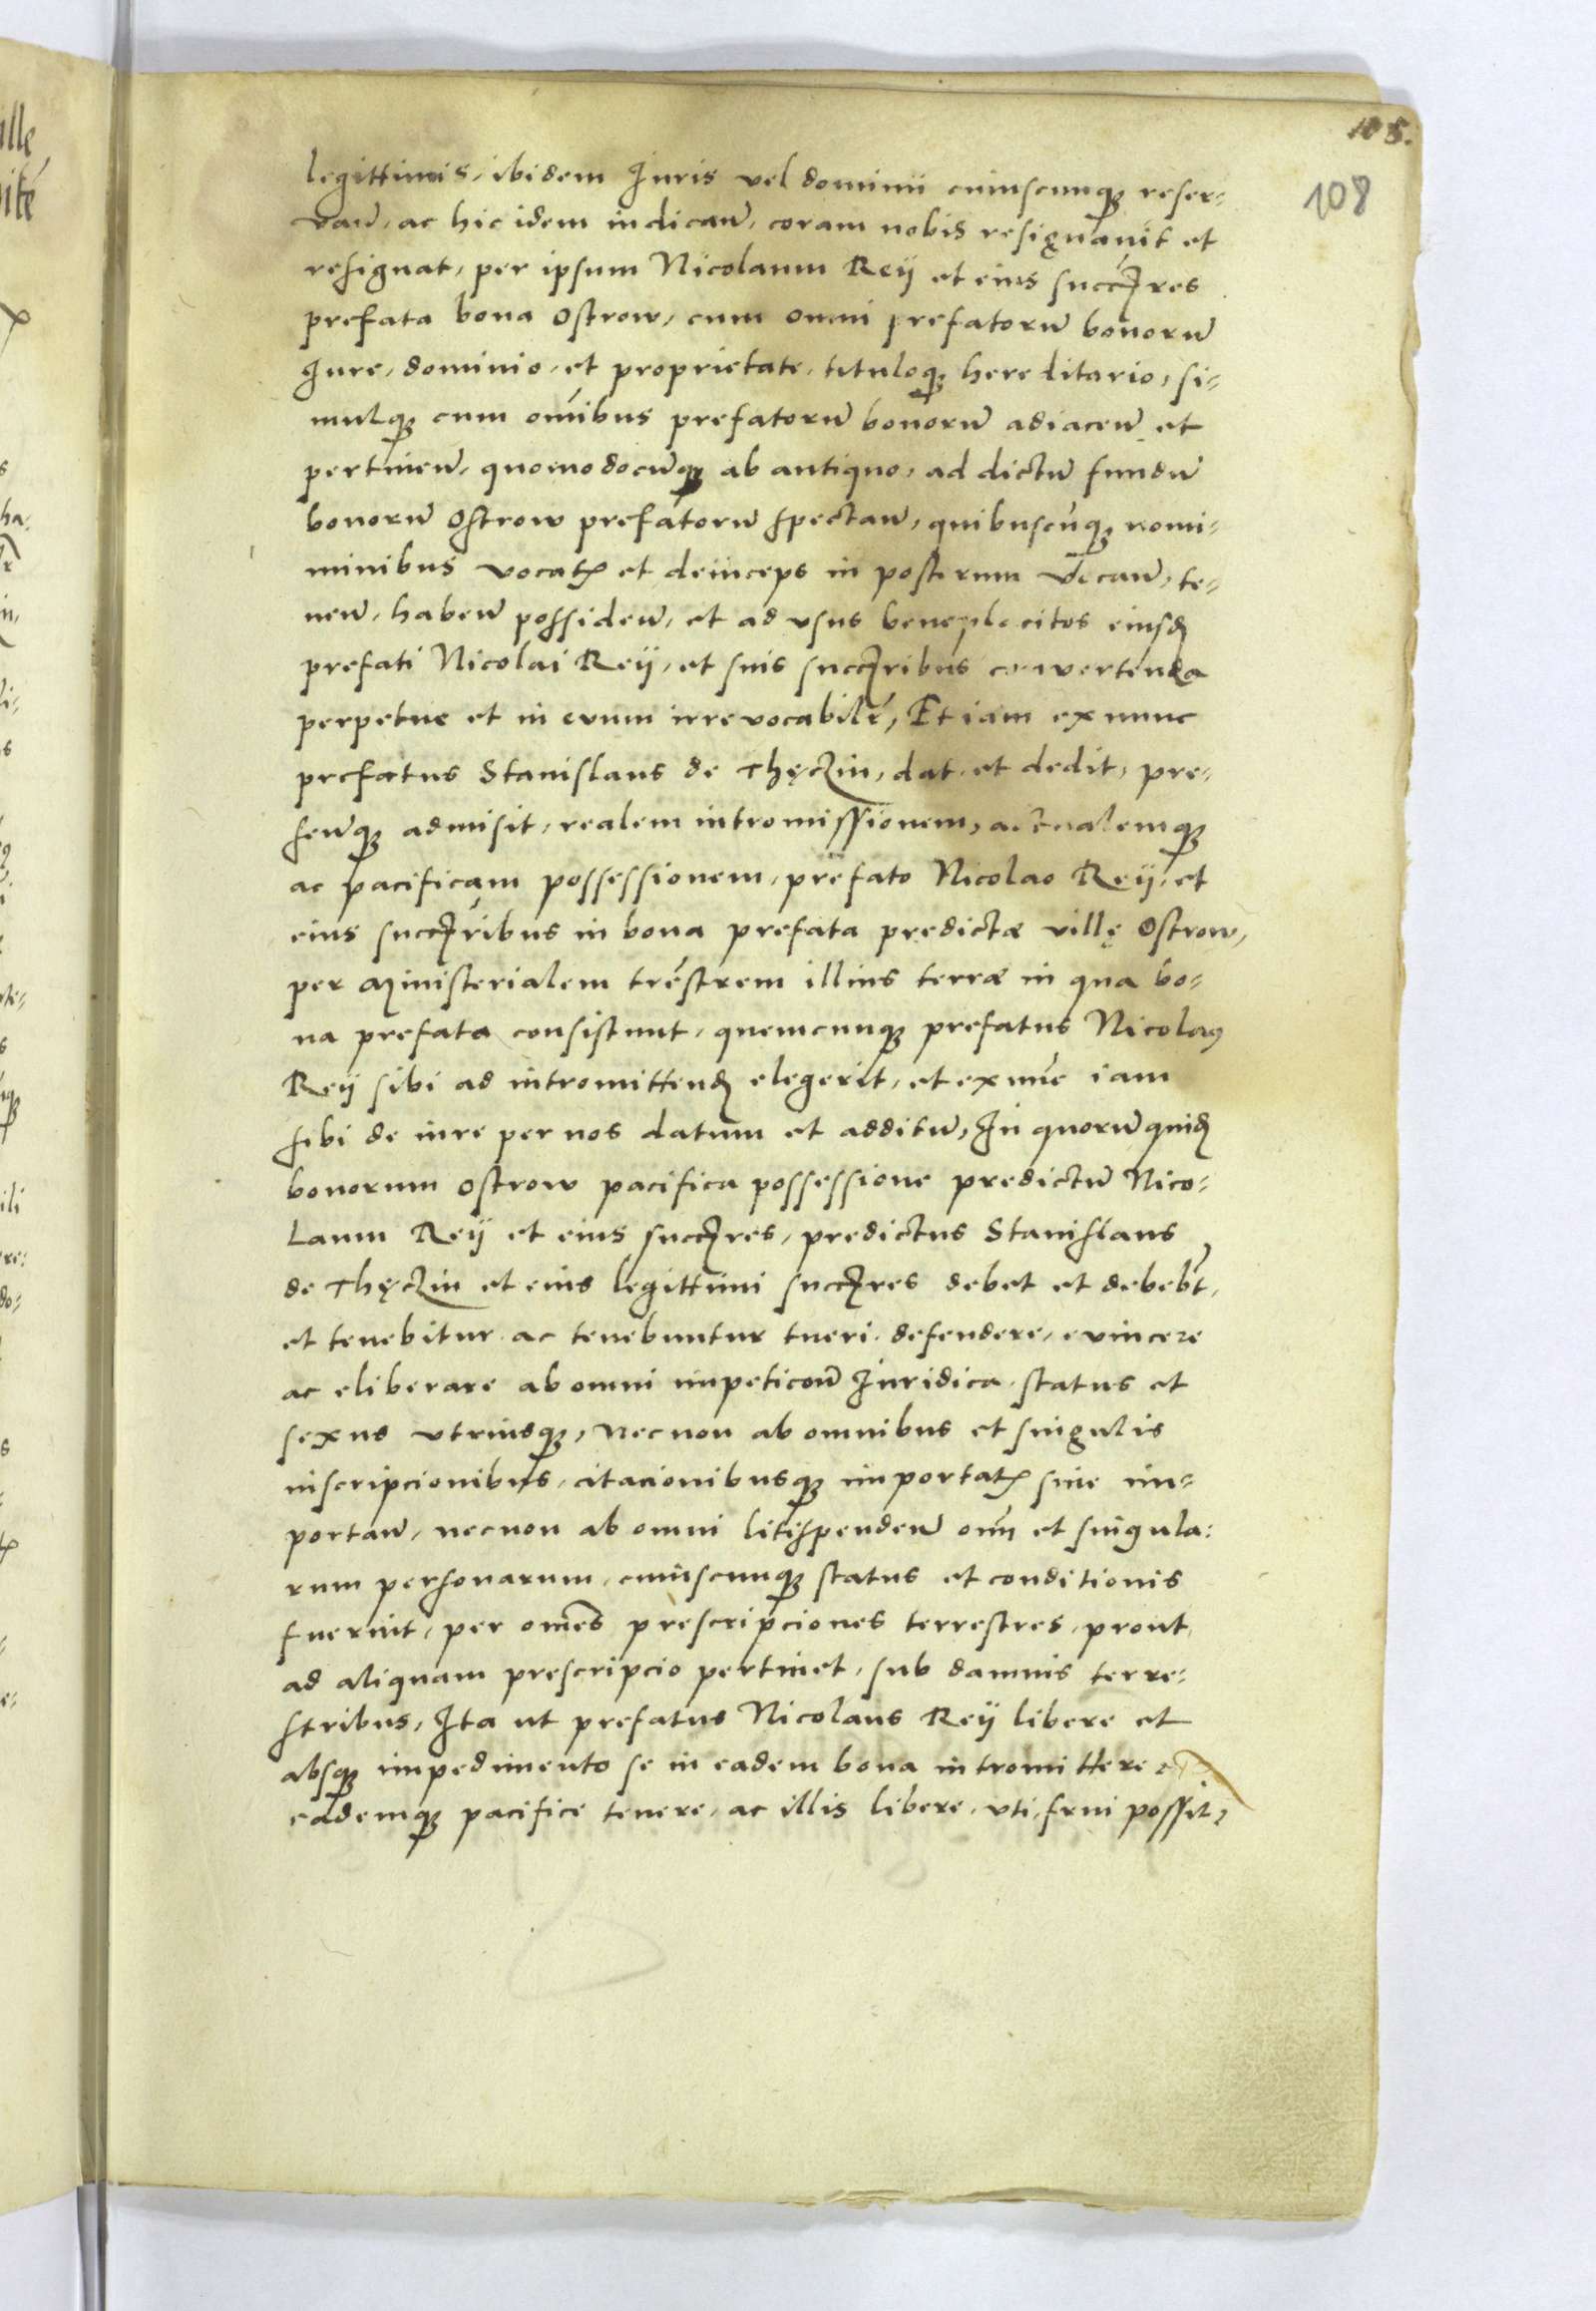 105.
108
legittimis, ibidem Iuris vel dominii cuiuscunqꝫ reser-
van̄, ac hic idem indican̄, coram nobis resignauit et
resignat, per ipsum Nicolaum Reÿ et eius succꝭres
prefata bona Ostrow, cum omni prefatorū bonorū
Iure, dominio, et proprietate, tituloqꝫ hereditario, si-
mulqꝫ cum om̄ibus prefatorū bonorū adiacen̄ et
pertinen̄, quomodocūqꝫ ab antiquo, ad dictū fundū
bonorū Ostrow prefatorū spectan̄, quibuscūqꝫ nomi-
minibus vocatꝭ et deinceps in posterum vocan̄, te-
nen̄, haben̄ possiden̄, et ad vsus beneplacitos eiusdꝫ
prefati Nicolai Reÿ, et suis succꝭribus convertenda
perpetue et in evum irrevocabilr̄, Et iam ex nunc
prefatus Stanislaus de Thęczin, dat et dedit, pre-
senqꝫ admisit, realem intromissionem, actualemqꝫ
ac pacificam possessionem, prefato Nicolao Reÿ, et
eius succꝭribus in bona prefata predictæ villę Ostrow,
per Ministerialem trēstrem illius terræ in qua bo-
na prefata consistunt, quemcunqꝫ prefatus Nicolaꝰ
Reÿ sibi ad intromittendꝫ elegerit, et ex nūc iam
sibi de iure per nos datum et additū, In quorū quidꝫ
bonorum Ostrow pacifica possessione predictū Nico-
laum Reÿ et eius succꝭres, predictus Stanislaus
de Thęczin et eius legittimi succꝭres debet et debebt̄,
et tenebitur ac tenebuntur tueri defendere, evincere
ac eliberare ab omni impeticon̄ Iuridica status et
sexus vtriusqꝫ, Necnon ab omnibus et singulis
inscripcionibus, citacionibusqꝫ importatꝭ siue im-
portan̄, necnon ab omni litispenden̄ om̄ et singula:
rum personarum, cuiuscunqꝫ status et conditionis
fuerint, per om̄es prescripciones terrestres, prout
ad aliquam prescripcio pertinet, sub damnis terre-
stribus, Ita ut prefatus Nicolaus Reÿ libere et
absqꝫ impedimento se in eadem bona intromittere et
eademqꝫ pacifice tenere, ac illis libere, vti, frui possit,